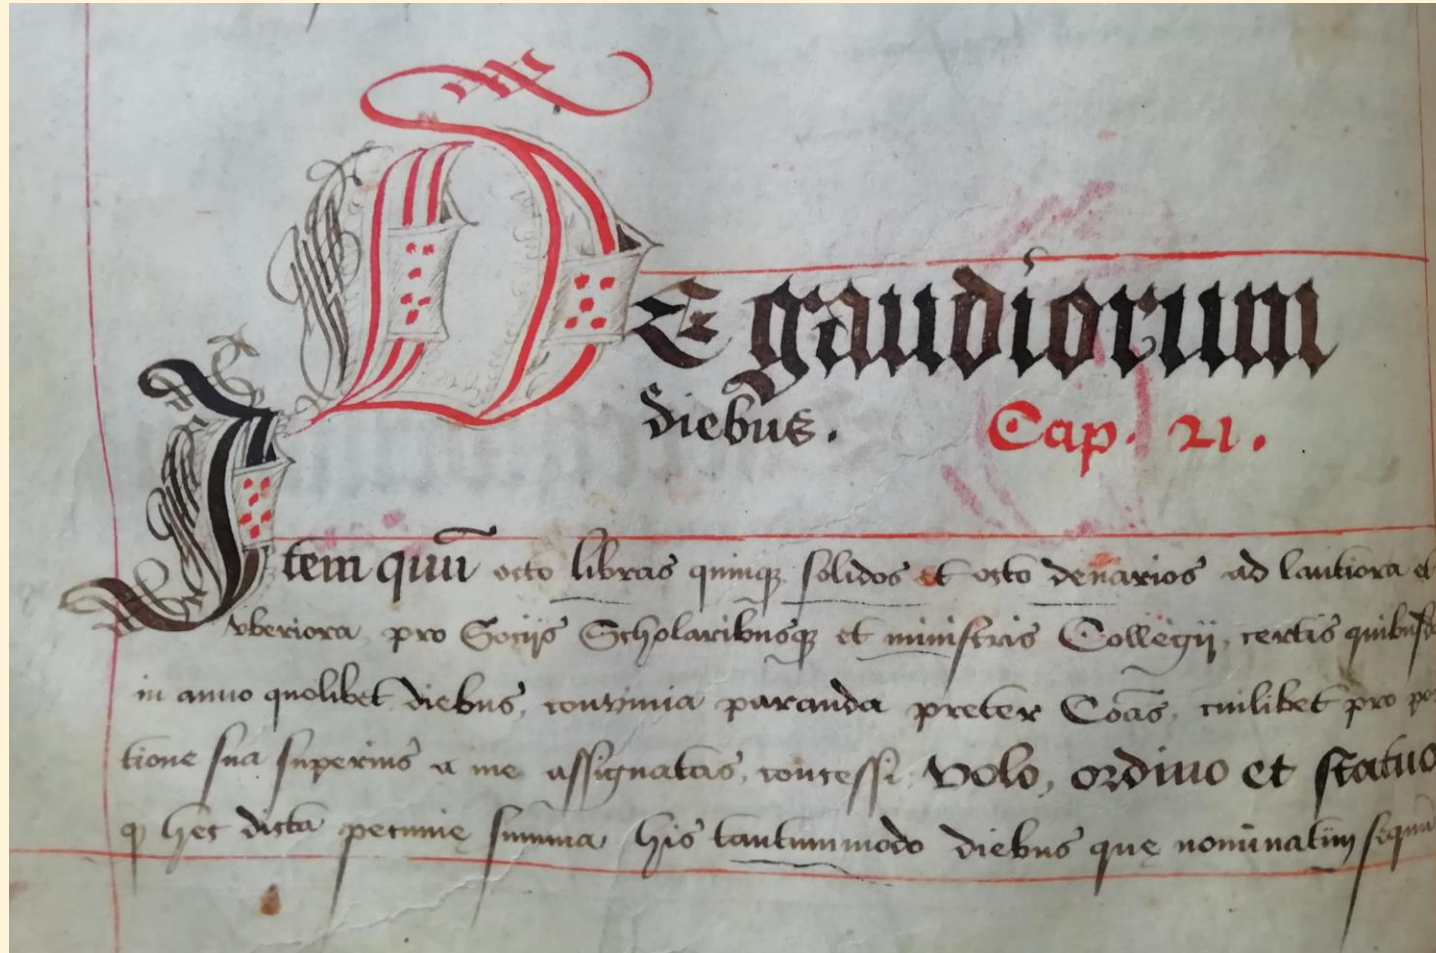 DE gaudiorum
diebus. Cap. 21.
Item quū octo libras quinqꝫ solidos et octo denarios ad lautiora et
vberiora, pro Socijs Scholaribusqꝫ et ministris Collegij, certis quibusd
in anno quolibet diebus, conuiuia paranda preter Cōas, cuilibet pro por
tione sua superius a me assignatas, concessi. Volo, ordino et statuo
ꝙ hęc dicta pecunię summa, his tantummodo diebus quę nominatim sequū